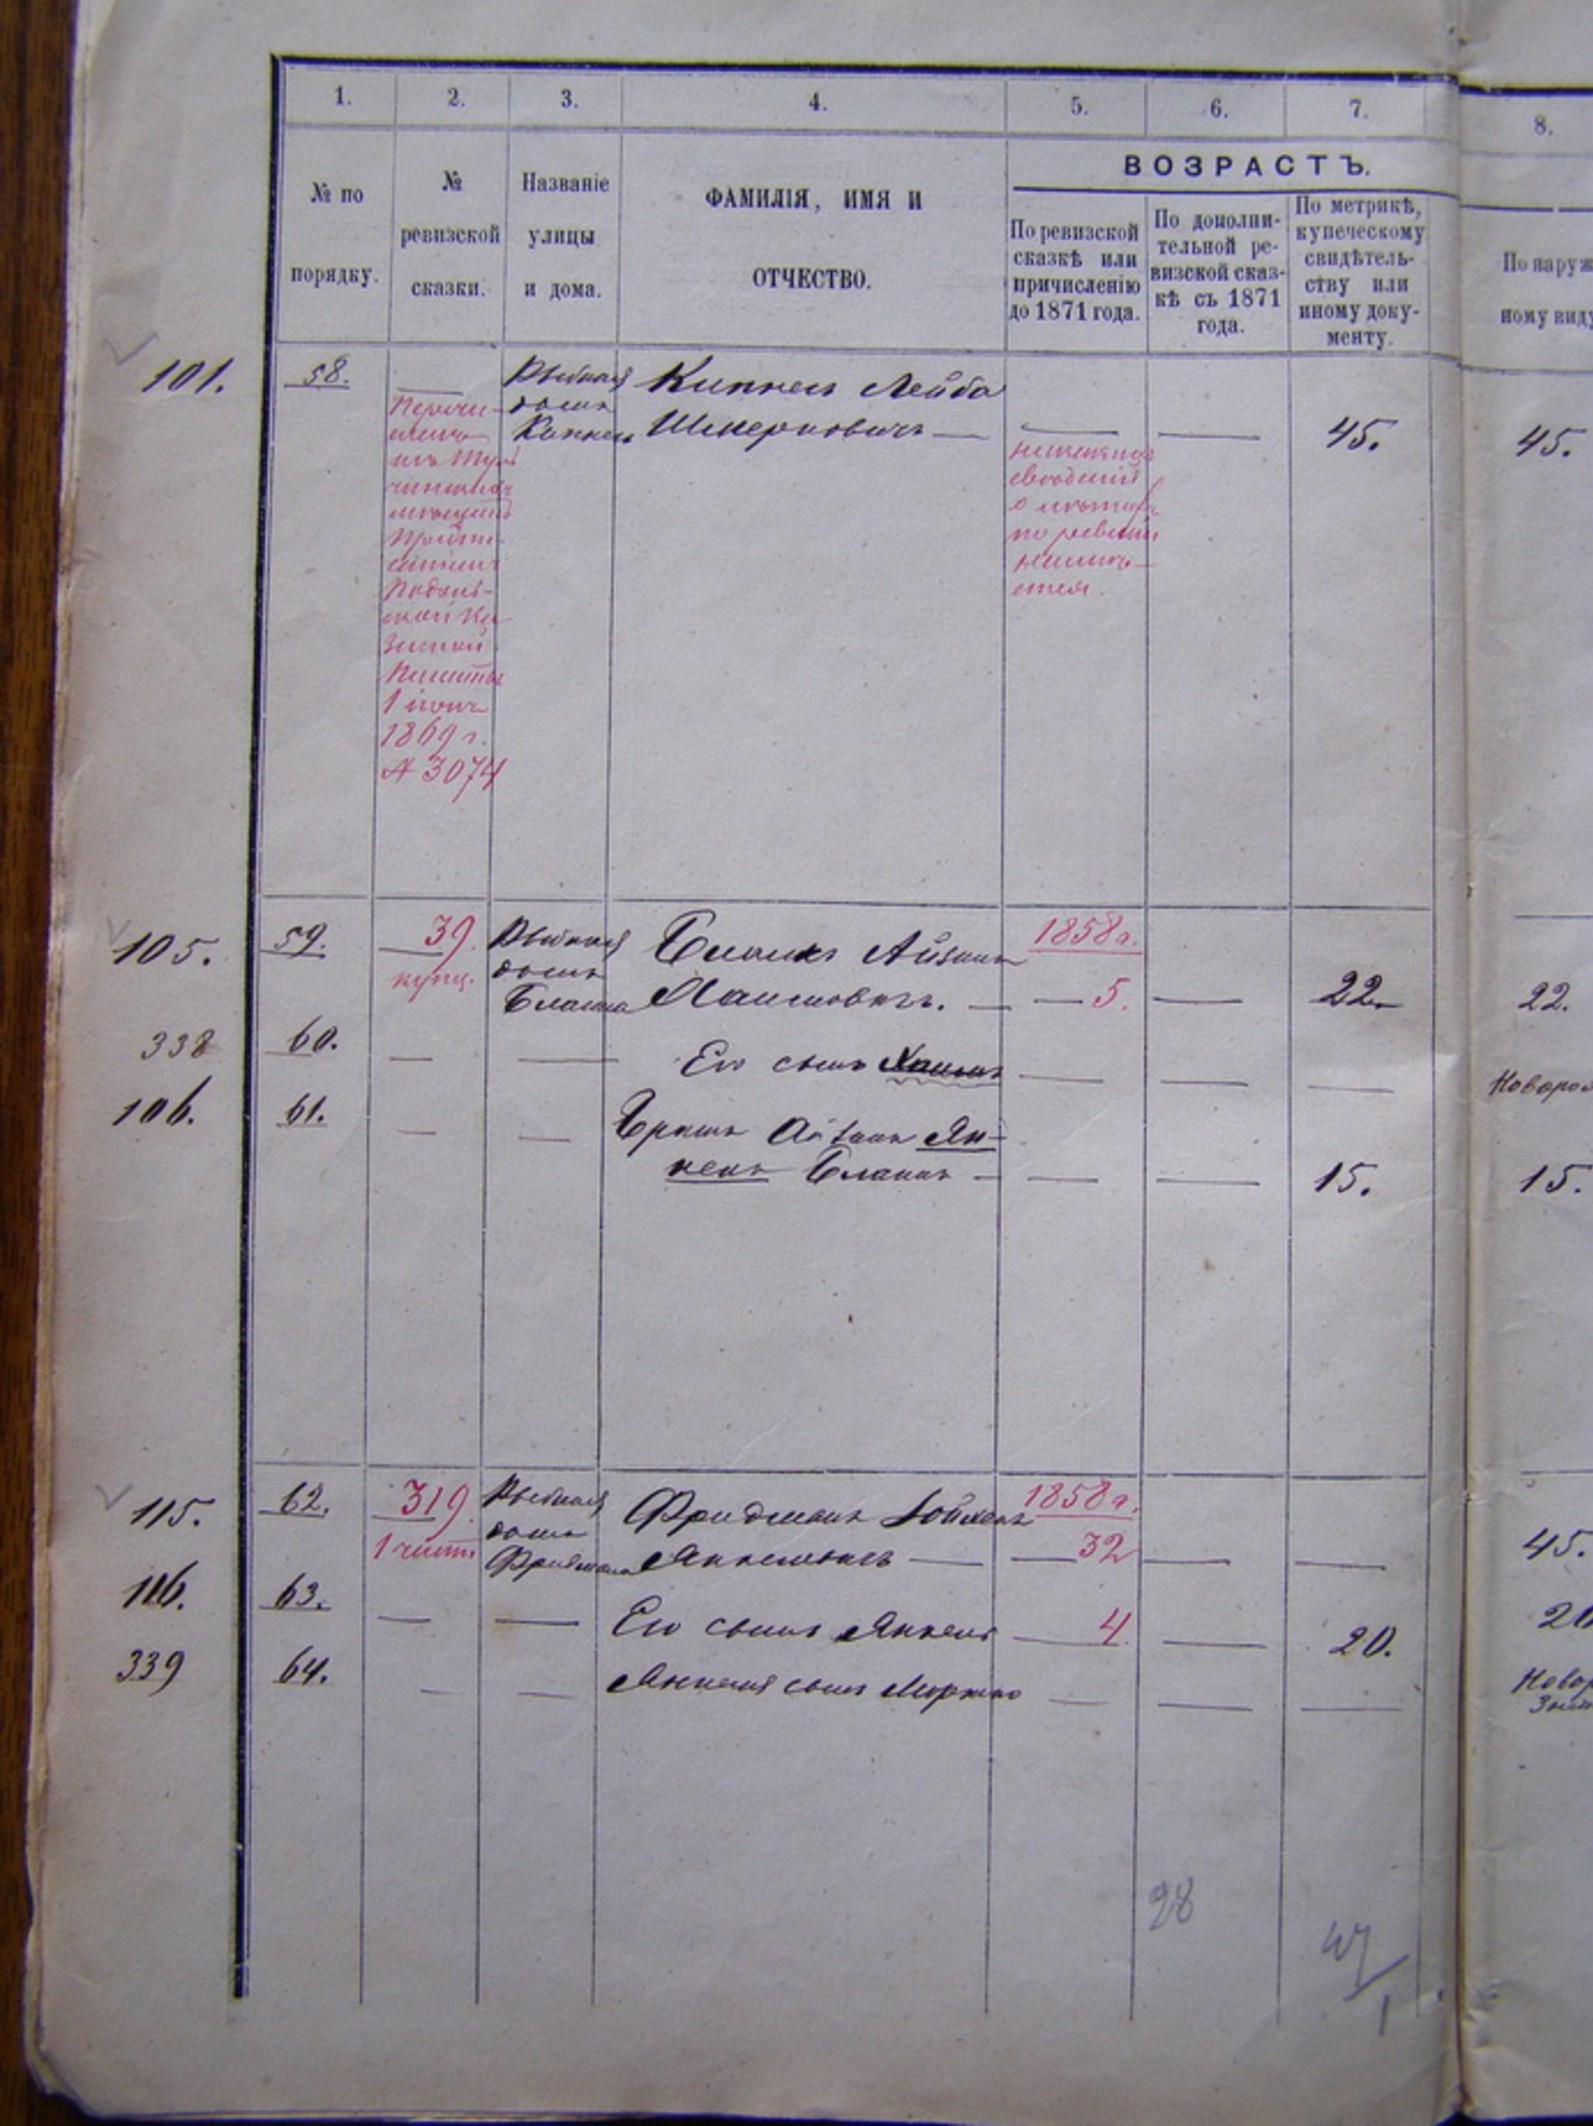 1.
2.
3.
4.
5.
6.
7.
8.
№ по
порядку.
№
ревизской
сказки.
Названіе
улицы
и дома.
ФАМИЛІЯ, ИМЯ И
ОТЧЕСТВО.
ВОЗРАСТЪ.
По ревизской
сказкѣ или
причисленію
до 1871 года.
По дополни-
тельной ре-
визской сказ-
кѣ съ 1871
года.
По метрикѣ,
купеческому
свидѣтель-
ству или
иному доку-
менту.
По наруж
ному виду
101.
58.
Перечи-
сленъ
мѣщанъ
Подоль-
ской Ка-
зенной
Палаты
1869 г.
№ 3074
Рыбная
домъ
Киппель Лейба
сведеній
о
по ревизіи
45.
45.
105.
59.
39.
купц.
Рыбная
домъ
Бланка
Бланкъ Айзикъ
Хаимовичъ.
1858 г.
5.
22.
22.
338
60.
Его сынъ Хаимъ
Новорож
106.
61.
Братъ Айзика Ян-
кель Бланкъ
15.
15.
115.
62.
319.
Рыбная
домъ
Фридмана
Фридманъ Бойхель
Янкелевичъ
1858 г.
32
45.
116.
63.
Его сынъ Янкель
4
20.
20
339
64.
Янкеля сынъ Мортко
Новор
28